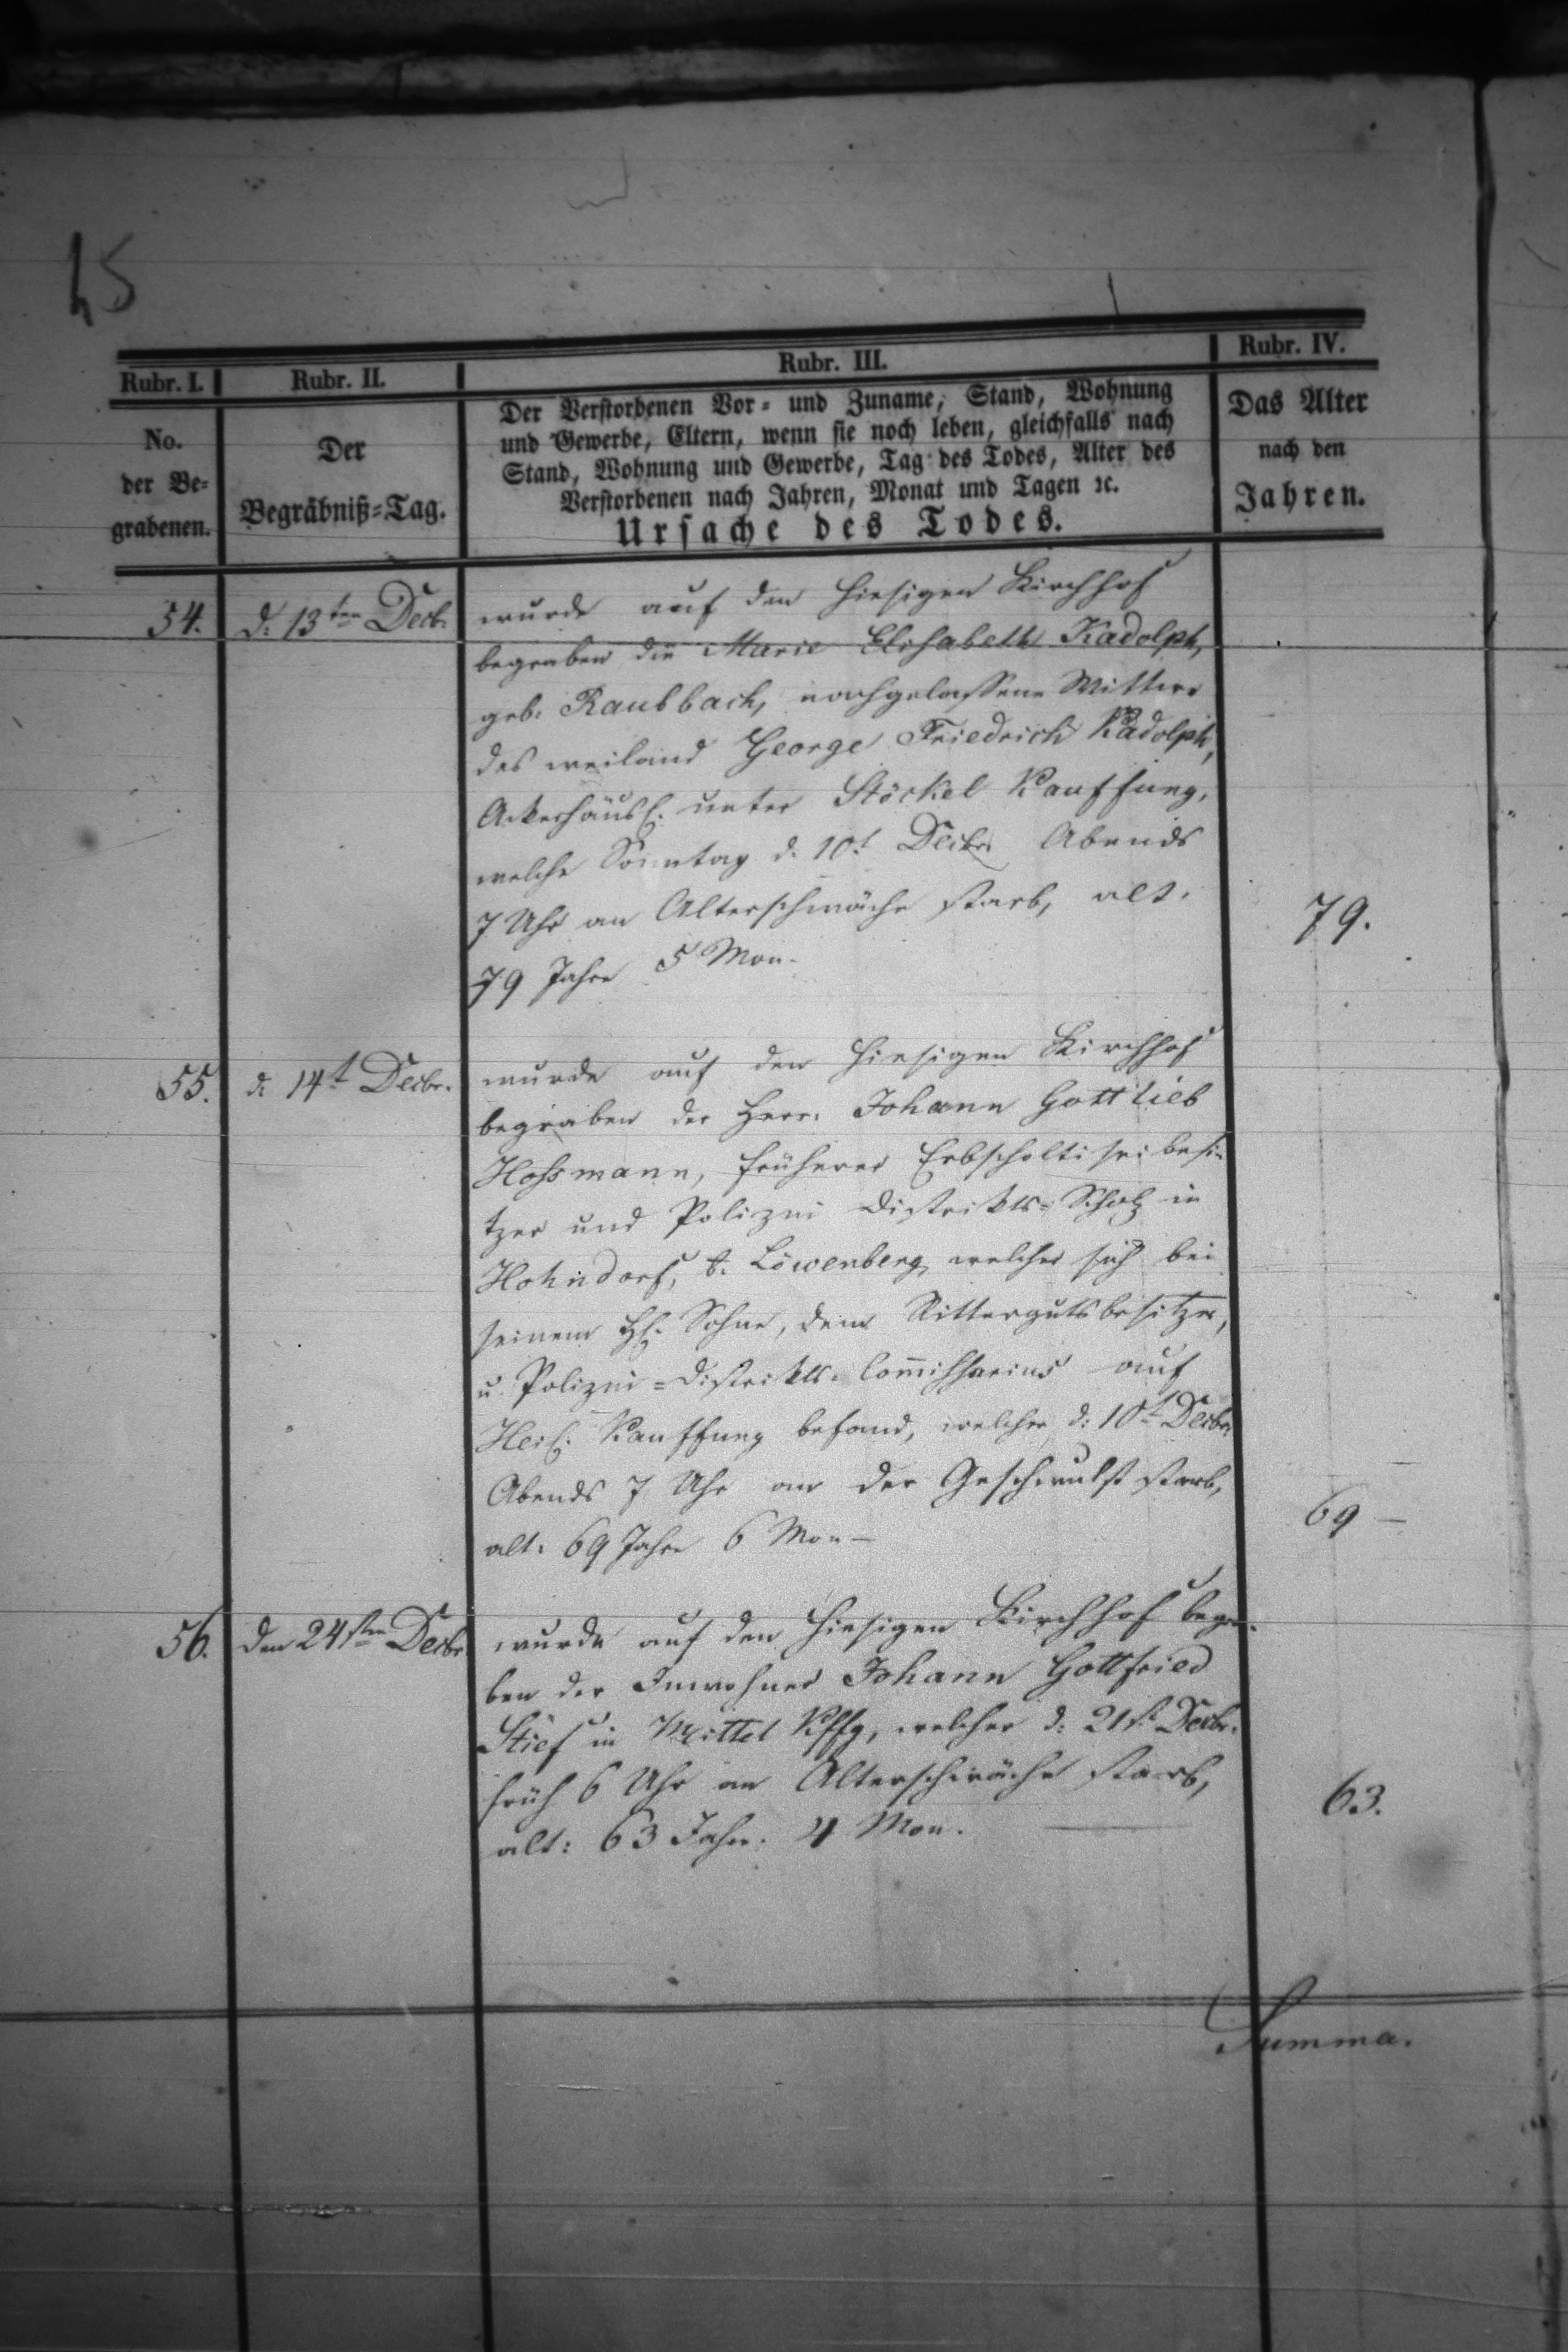 45
Rubr. I. Rubr. II. Rubr. III. Rubr. IV.
No.
der Be=
grabenen.
Der
Begräbniß=Tag.
Der Verstorbenen Vor= und Zuname, Stand, Wohnung
und Gewerbe, Eltern, wenn sie noch leben, gleichfalls nach
Stand, Wohnung und Gewerbe, Tag des Todes, Alter des
Verstorbenen nach Jahren, Monat und Tagen ꝛc.
Ursache des Todes.
Das Alter
nach den
Jahren.
54. d. 13ten Decb. wurde auf den hiesigen Kirchhof
begraben die Marie Elisabeth Kadolph,
geb. Raubbach, nachgelassene Wittwe
des weiland George Friedrich Kadolph,
Ackerhäusl. unter Stöckel Kauffung,
welche Sonntag d. 10t Decbr Abends
7 Uhr an Alterschwäche starb, alt.
79 Jahre 5 Mon. 79.
55. d. 14t Decbr. wurde auf den hiesigen Kirchhof
begraben der Herr Johann Gottlieb
Hoffmann, früherer Erbscholtisei besi-
tzer und Polizei Distrikts=Scholz in
Hohndorf, b. Löwenberg, welcher sich bei
seinem H. Sohne, dem Rittergutsbesitzer,
u. Polizei=Distrikts-Com̄issarius auf
Kauffung befand, welcher d: 10t Decbr.
Abends 7 Uhr an der Geschwulst starb,
alt: 69 Jahre 6 Mon — 69 —
56. den 24sten Decbr wurde auf den hiesigen Kirchhof begra-
ben der Inwohner Johann Gottfried
Stief in Mittel Kffg, welcher d: 21st Decbr.
früh 6 Uhr an Alterschwäche starb,
alt: 63 Jahr. 4 Mon. 63.
Summa.